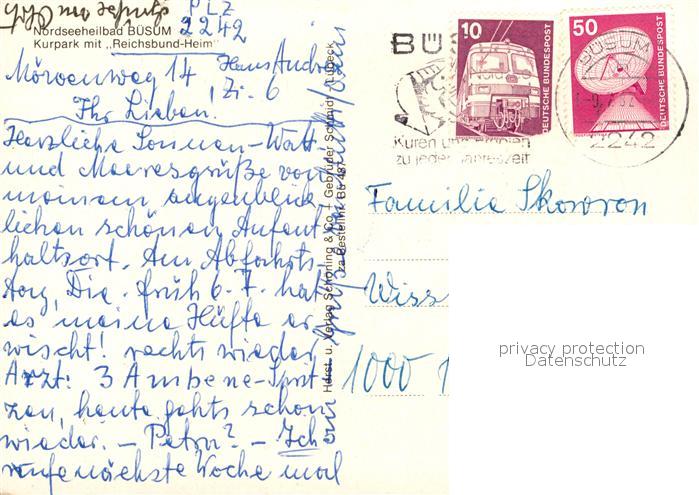 PLZ
2242
Nordseeheilbad BÜSUM
Kurpark mit „Reichsbund-Heim"
Mövenweg 14
Zi. 6
Ihr Lieben.
Herzliche Sonnen-Watt-
und Meeresgrüße von
meinem augenblick-
lichen schönen Aufent
haltsort. Am Abfahrts-
tag, Die. früh 6.7. hat
es meine Hüfte er
wischt! rechts wieder
Arzt: 3 Ambene-Sprit
zen, heute gehts schon
wieder. – Petra? – Ich
rufe nächste Woche mal
Horst. u. Verlag Schöning & Co + Gebrüder Schmidt, Lübeck
Bestellnr. Bü 487
BÜS
Kuren und
zu jeder Jahreszeit
10
DEUTSCHE BUNDESPOST
50
DEUTSCHE BUNDESPOST
BÜSUM
2242
Familie Skowron
Wiss
1000 1
privacy protection
Datenschutz